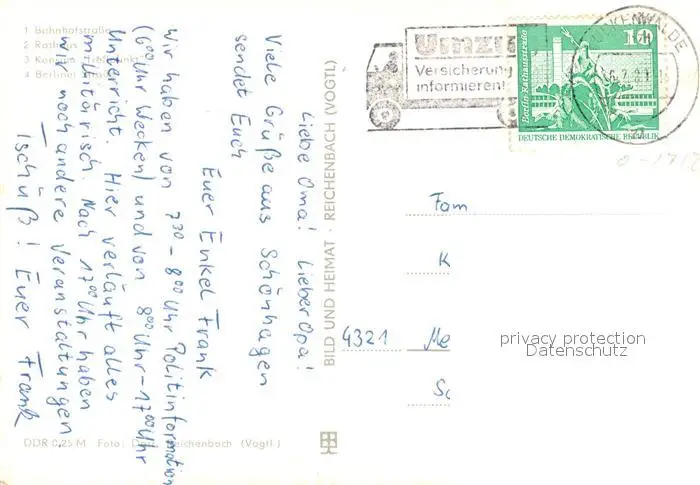 1 Bahnhofstraße
2 Rathaus
3
4 Berliner
Liebe Oma! Lieber Opa!
Viele Grüße aus Schönhagen
sendet Euch
Euer Enkel Frank
Wir haben von 7³⁰ - 8⁰⁰ Uhr Politinformation
(6⁰⁰ Uhr Wecken) und von 8⁰⁰ Uhr - 17⁰⁰ Uhr
Unterricht. Hier verläuft alles
militärisch. Nach 17⁰⁰ Uhr haben
wir noch andere Veranstaltungen.
Tschüß! Euer Frank
DDR 0,25 M Foto: Reichenbach (Vogtl.)
BILD UND HEIMAT · REICHENBACH (VOGTL)
Umzu
Versicherung
informieren!
LUCKENWALDE
Berlin-Rathausstraße
10
DEUTSCHE DEMOKRATISCHE REPUBLIK
Fam
K
4321 Me
Sc
privacy protection
Datenschutz